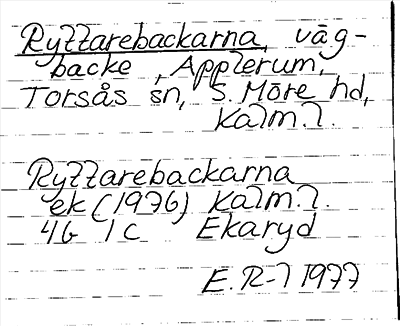 Ryllarebackarna, väg-
backe, Applerum,
Torsås sn, S. Möre hd,
Kalm. l.
Ryllarebackarna
ek (1976) Kalm. l.
4G 1c Ekaryd
E. R-l 1977